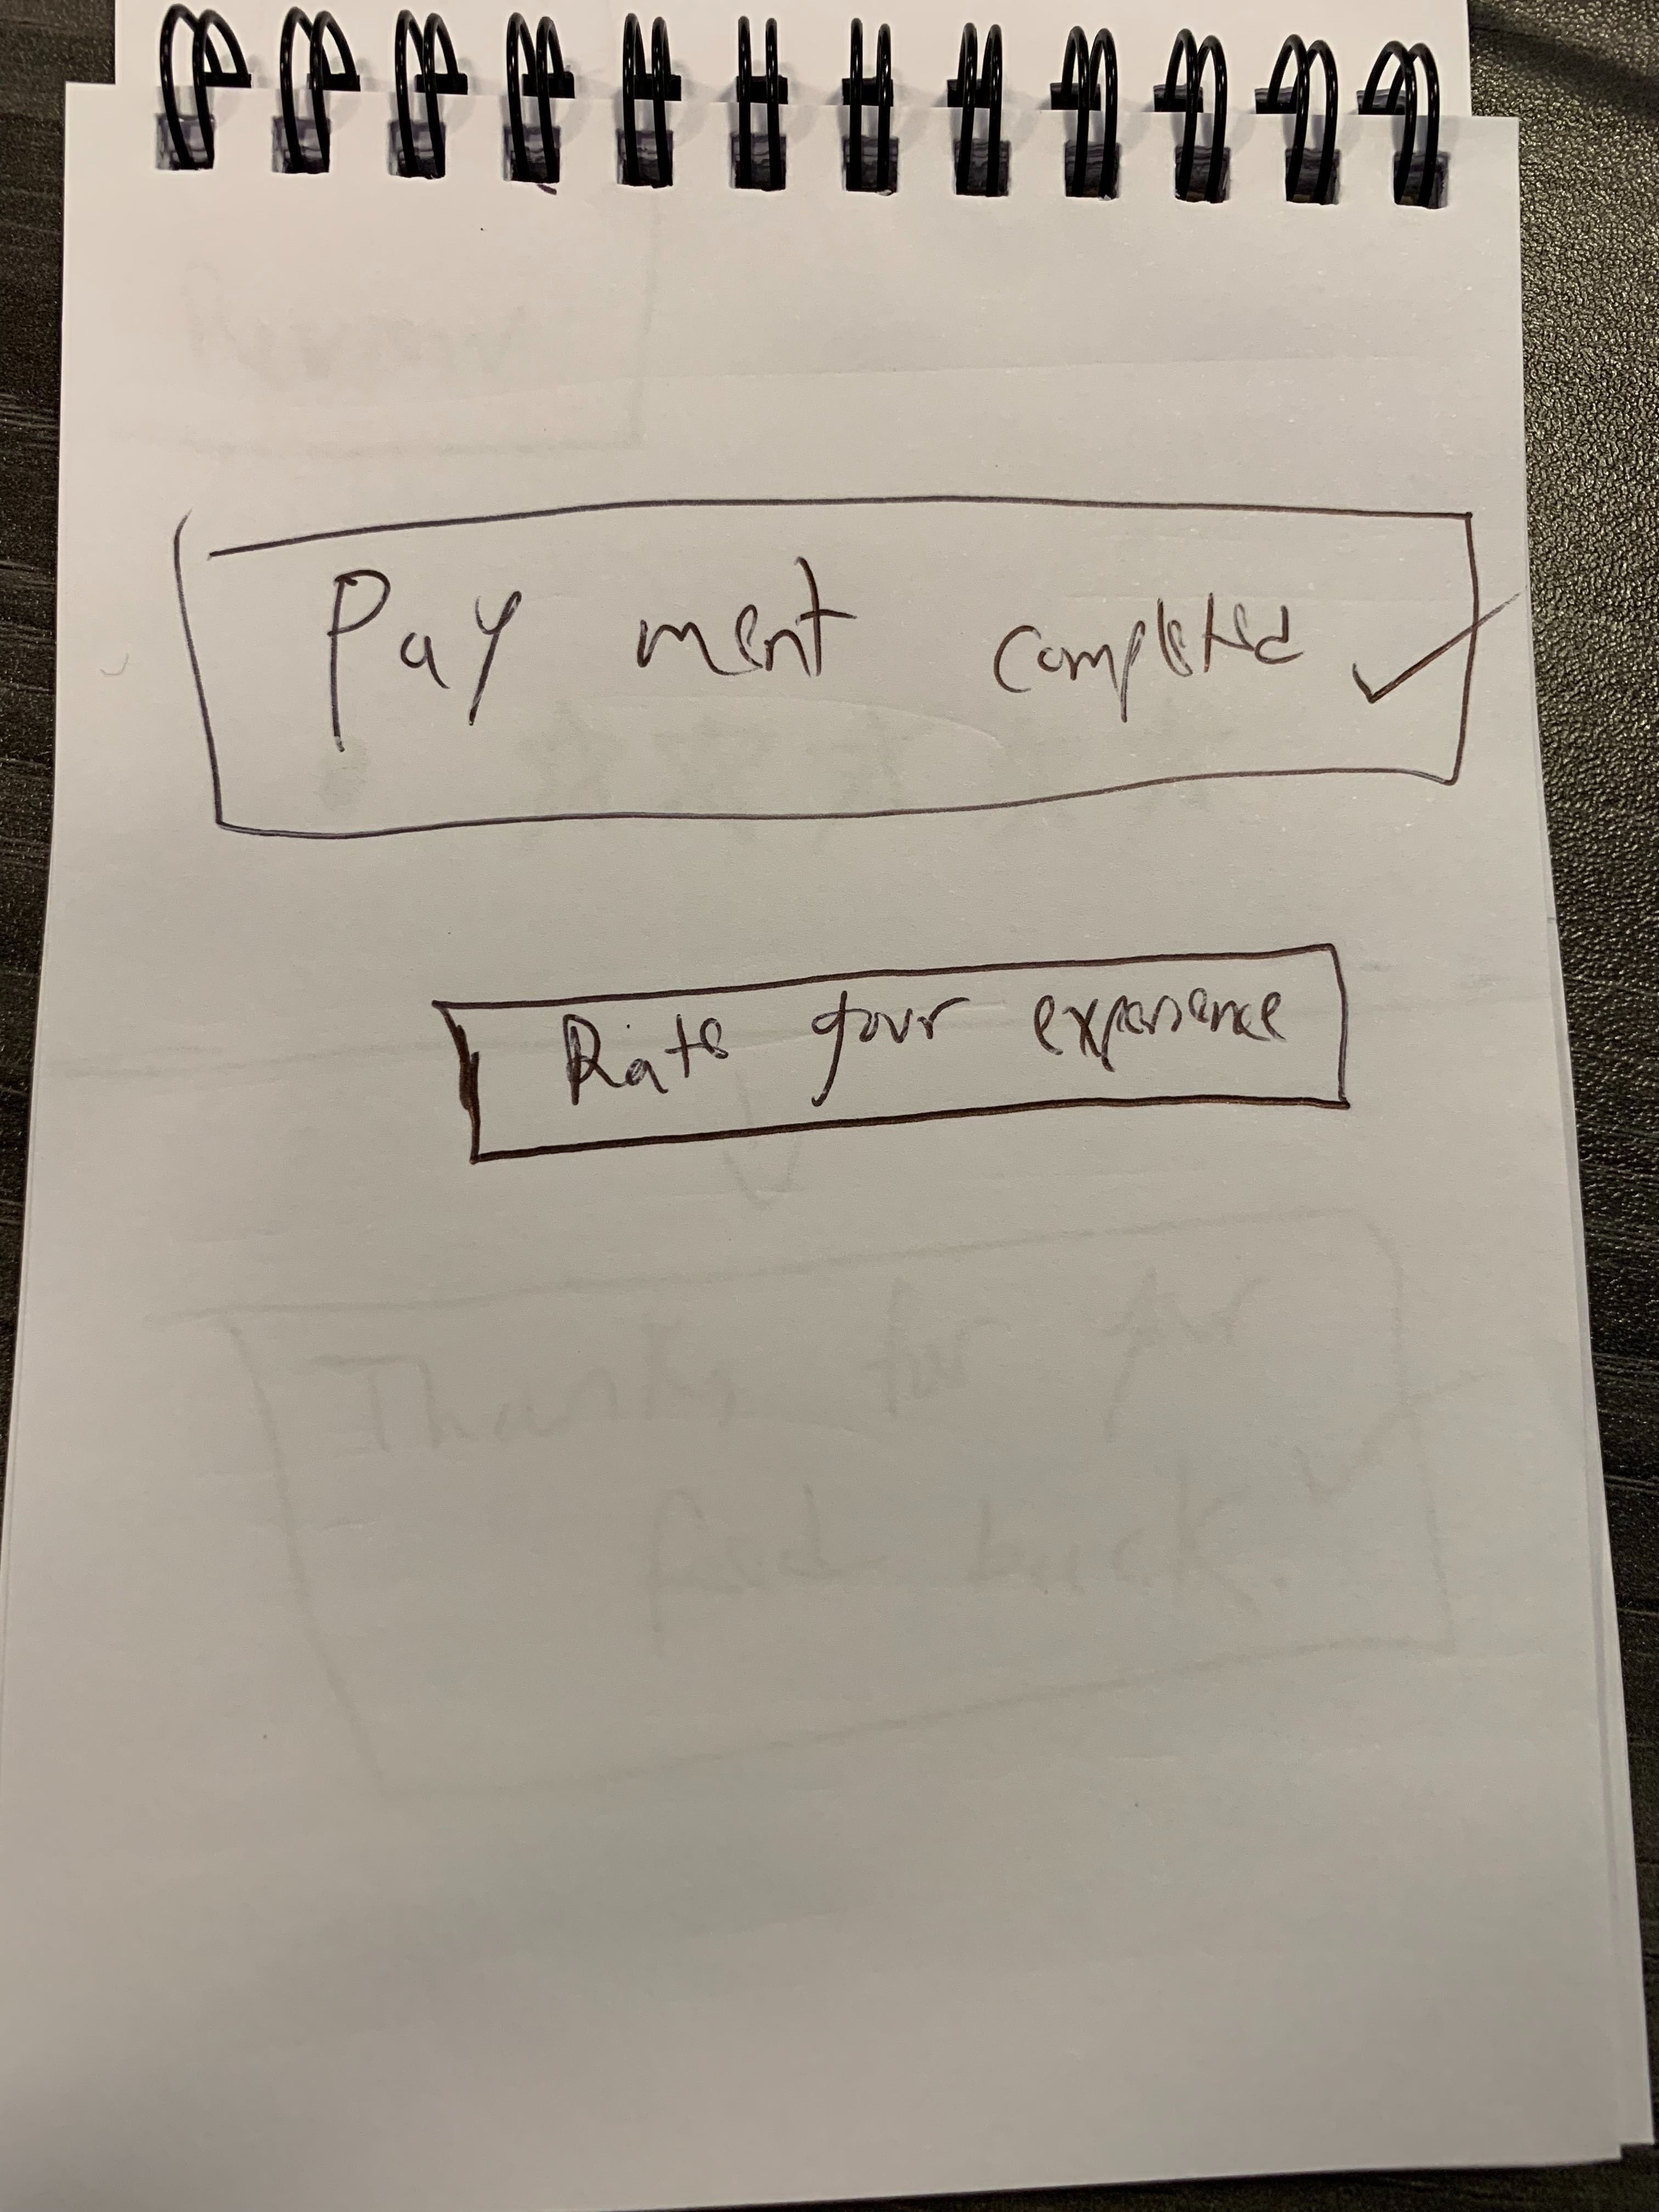 Payment completed ✓
Rate your experience
Thanks for your
feed back.